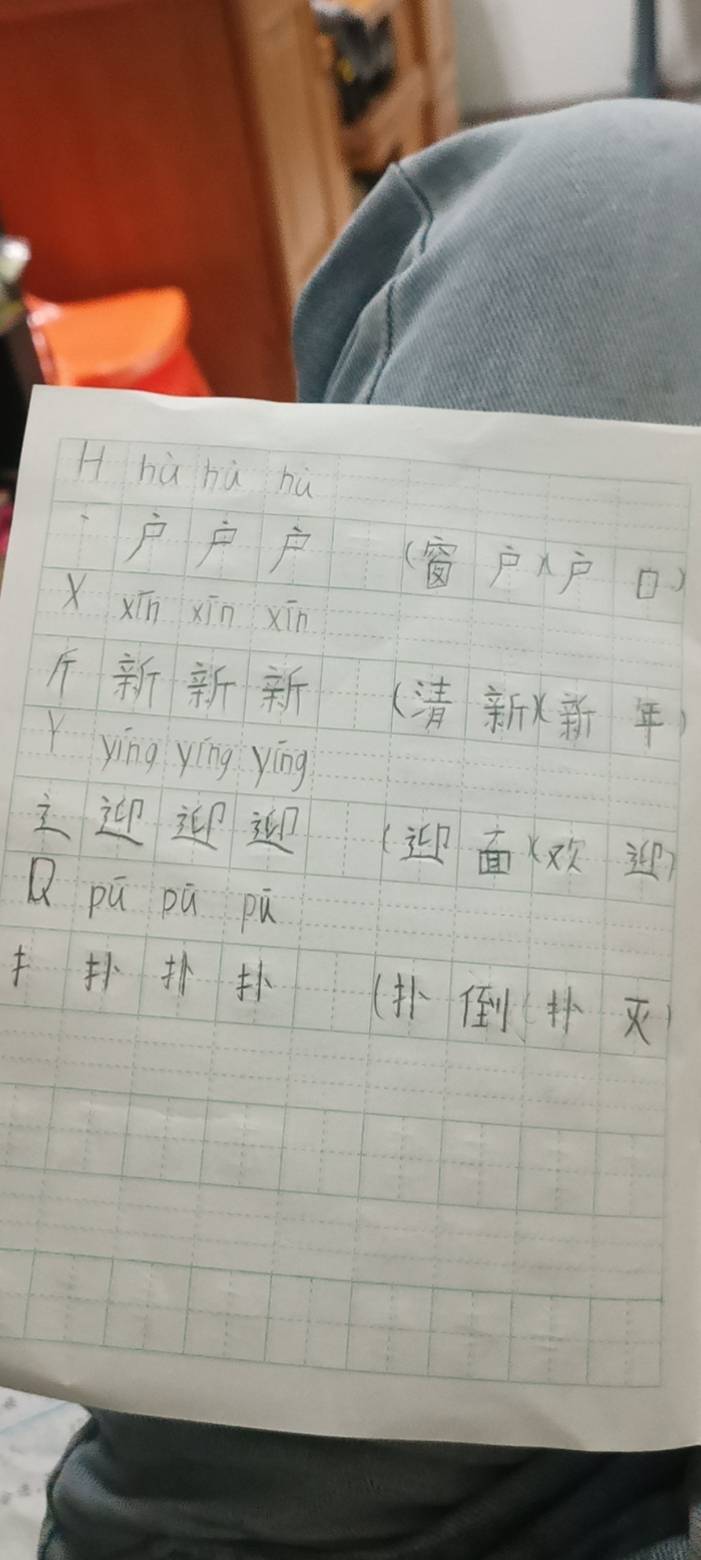 H hù hù hù
丶 户 户 户 (窗户)(户口)
X xīn xīn xīn
斤 新 新 新 (清新)(新年)
Y yíng yíng yíng
辶 迎 迎 迎 (迎面)(欢迎)
Q pū pū pū
扌 扑 扑 扑 (扑倒)(扑灭)